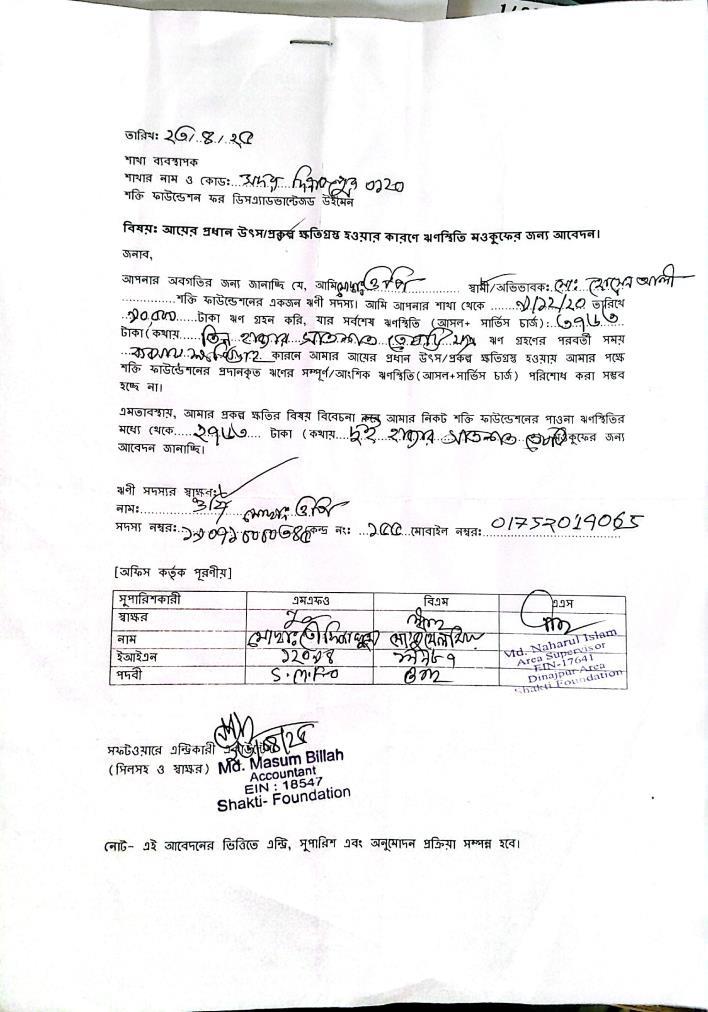 তারিখ: ২৩/৪/২৫
শাখা ব্যবস্থাপক
শাখার নাম ও কোড:... সদর দিনাজপুর ০১২০
শক্তি ফাউন্ডেশন ফর ডিসএ্যাডভান্টেজড উইমেন
বিষয়: আয়ের প্রধান উৎস/প্রকল্প ক্ষতিগ্রস্ত হওয়ার কারণে ঋণস্থিতি মওকুফের জন্য আবেদন।
জনাব,
আপনার অবগতির জন্য জানাচ্ছি যে, আমি স্বামী/অভিভাবক: মো: হোসেন আলী
শক্তি ফাউন্ডেশনের একজন ঋণী সদস্য। আমি আপনার শাখা থেকে তারিখে
টাকা ঋণ গ্রহন করি, যার সর্বশেষ ঋণস্থিতি (আসল+ সার্ভিস চার্জ): ৩৭৮৩
টাকা (কথায় তিন হাজার সাতশত ঋণ গ্রহণের পরবর্তী সময়
কারনে আমার আয়ের প্রধান উৎস/প্রকল্প ক্ষতিগ্রস্ত হওয়ায় আমার পক্ষে
শক্তি ফাউন্ডেশনের প্রদানকৃত ঋণের সম্পূর্ণ/আংশিক ঋণস্থিতি(আসল+সার্ভিস চার্জ) পরিশোধ করা সম্ভব
হচ্ছে না।
এমতাবস্থায়, আমার প্রকল্প ক্ষতির বিষয় বিবেচনা করে আমার নিকট শক্তি ফাউন্ডেশনের পাওনা ঋণস্থিতির
মধ্যে থেকে..... ২৭৮৩ .... টাকা (কথায়.... দুই হাজার সাতশত মওকুফের জন্য
আবেদন জানাচ্ছি।
ঋণী সদস্যর স্বাক্ষর:
নাম:
সদস্য নম্বর: কেন্দ্র নং: ...১৫৫ মোবাইল নম্বর: 01752019065
[অফিস কর্তৃক পূরণীয়]
সুপারিশকারী এমএফও বিএম এএস
স্বাক্ষর
নাম
ইআইএন
পদবী S.M.F.O
Md. Naharul Islam
Area Supervisor
EIN-17641
Dinajpur Area
Shakti Foundation
সফটওয়ারে এন্ট্রিকারী
(সিলসহ ও স্বাক্ষর) Md. Masum Billah
Accountant
EIN : 18547
Shakti- Foundation
নোট- এই আবেদনের ভিত্তিতে এন্ট্রি, সুপারিশ এবং অনুমোদন প্রক্রিয়া সম্পন্ন হবে।